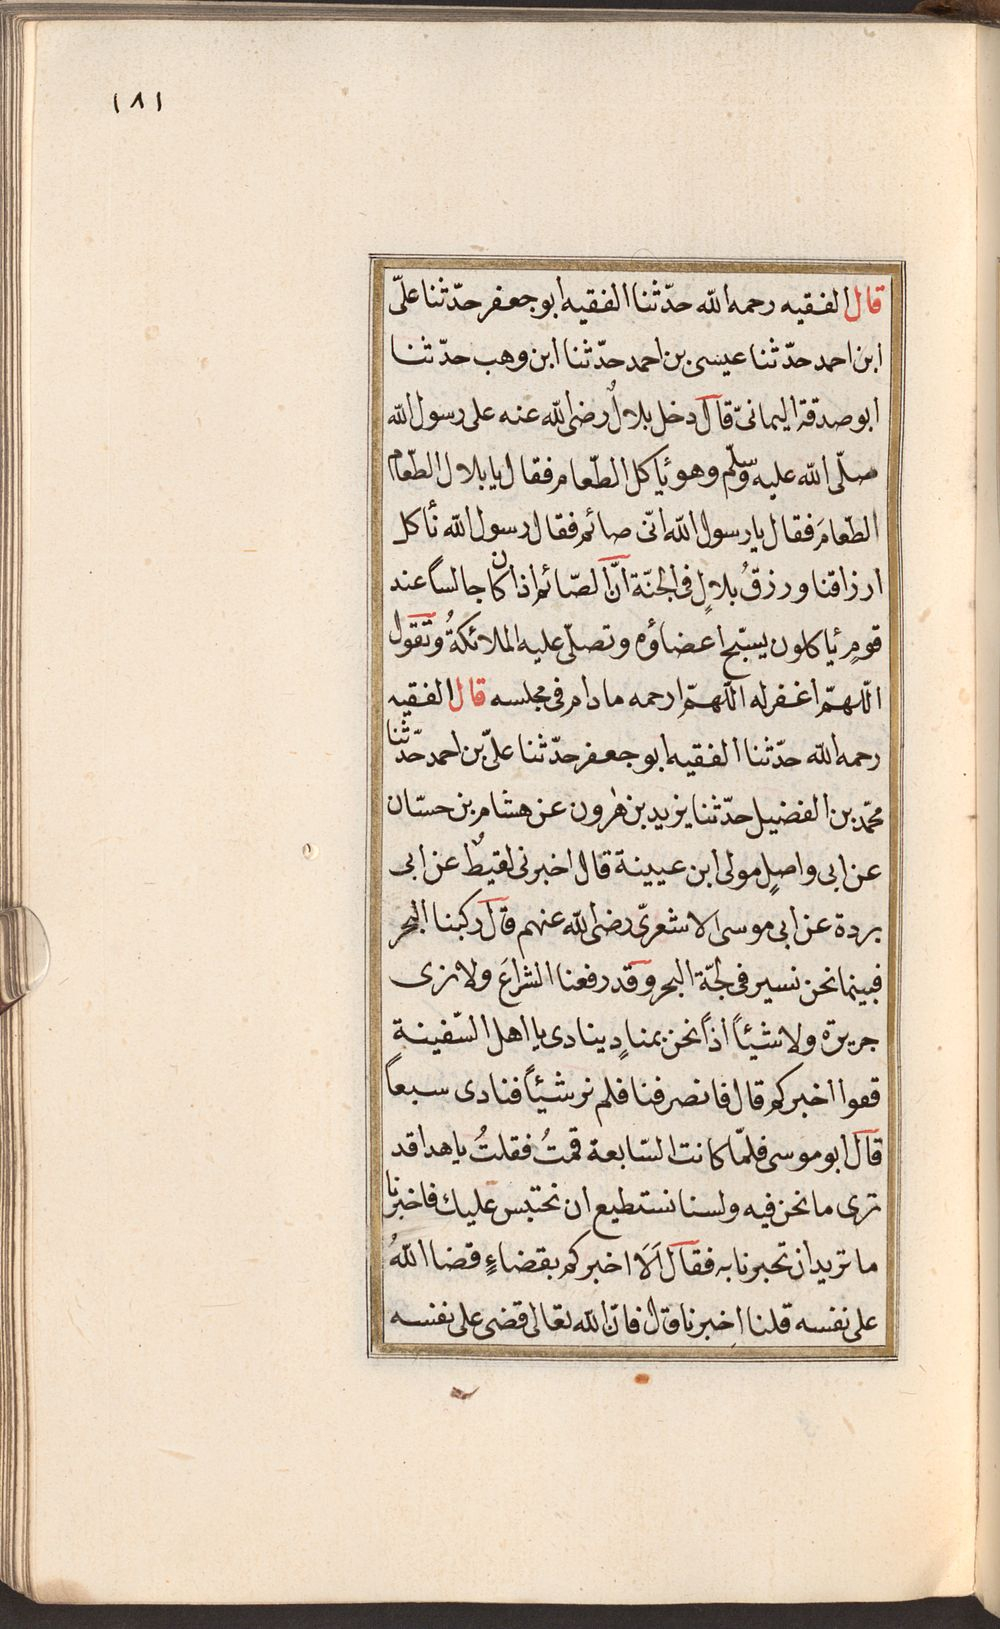 ١٨١
قال الفقيه رحمه الله حدّثنا الفقيه ابو جعفر حدّثنا علىّ
ابن احمد حدّثنا عيسى بن احمد حدّثنا ابن وهب حدّثنا
ابو صدقة اليمانىّ قال دخل بلالٌ رضى الله عنه على رسول الله
صلّى الله عليه وسلّم وهو يأكل الطّعام فقال يا بلال الطعام
الطّعامَ فقال يا رسول الله انّى صائم فقال رسول الله نأكل
ارزاقنا ورزقُ بلالٍ فى الجنّة انّ الصّائم اذا كان جالساً عند
قومٍ يأكلون يسبّح اعضاؤه وتصلّى عليه الملائكةُ وتقول
اللّهمّ اغفر له اللّهمّ ارحمه ما دام فى مجلسه قال الفقيه
رحمه الله حدّثنا الفقيه ابو جعفر حدّثنا علىّ بن احمد حدّثنا
محمّد بن الفضيل حدّثنا يزيد بن هٰرون عن هشام بن حسّان
عن ابى واصلٍ مولى ابن عيينة قال اخبرنى لقيطٌ عن ابى
بردة عن ابى موسى الاشعرىّ رضى الله عنهم قال ركبنا البحر
فبينما نحن نسير فى لجّة البحر وقد رفعنا الشراعَ ولا نرى
جزيرة ولا شيئاً اذاً نحن بمنادٍ ينادى يا اهل السّفينة
قفوا اخبركم قال فانصرفنا فلم نر شيئاً فنادى سبعاً
قال ابو موسى فلمّا كانت السّابعة قمتُ فقلتُ يا هذا قد
ترى ما نحن فيه ولسنا نستطيع ان نحتبس عليك فاخبرنا
ما تريد ان تخبرنا به فقال اَلَا اخبركم بقضاءٍ قضا اللهُ
على نفسه قلنا اخبرنا قال فانّ الله تعالى قضى على نفسه